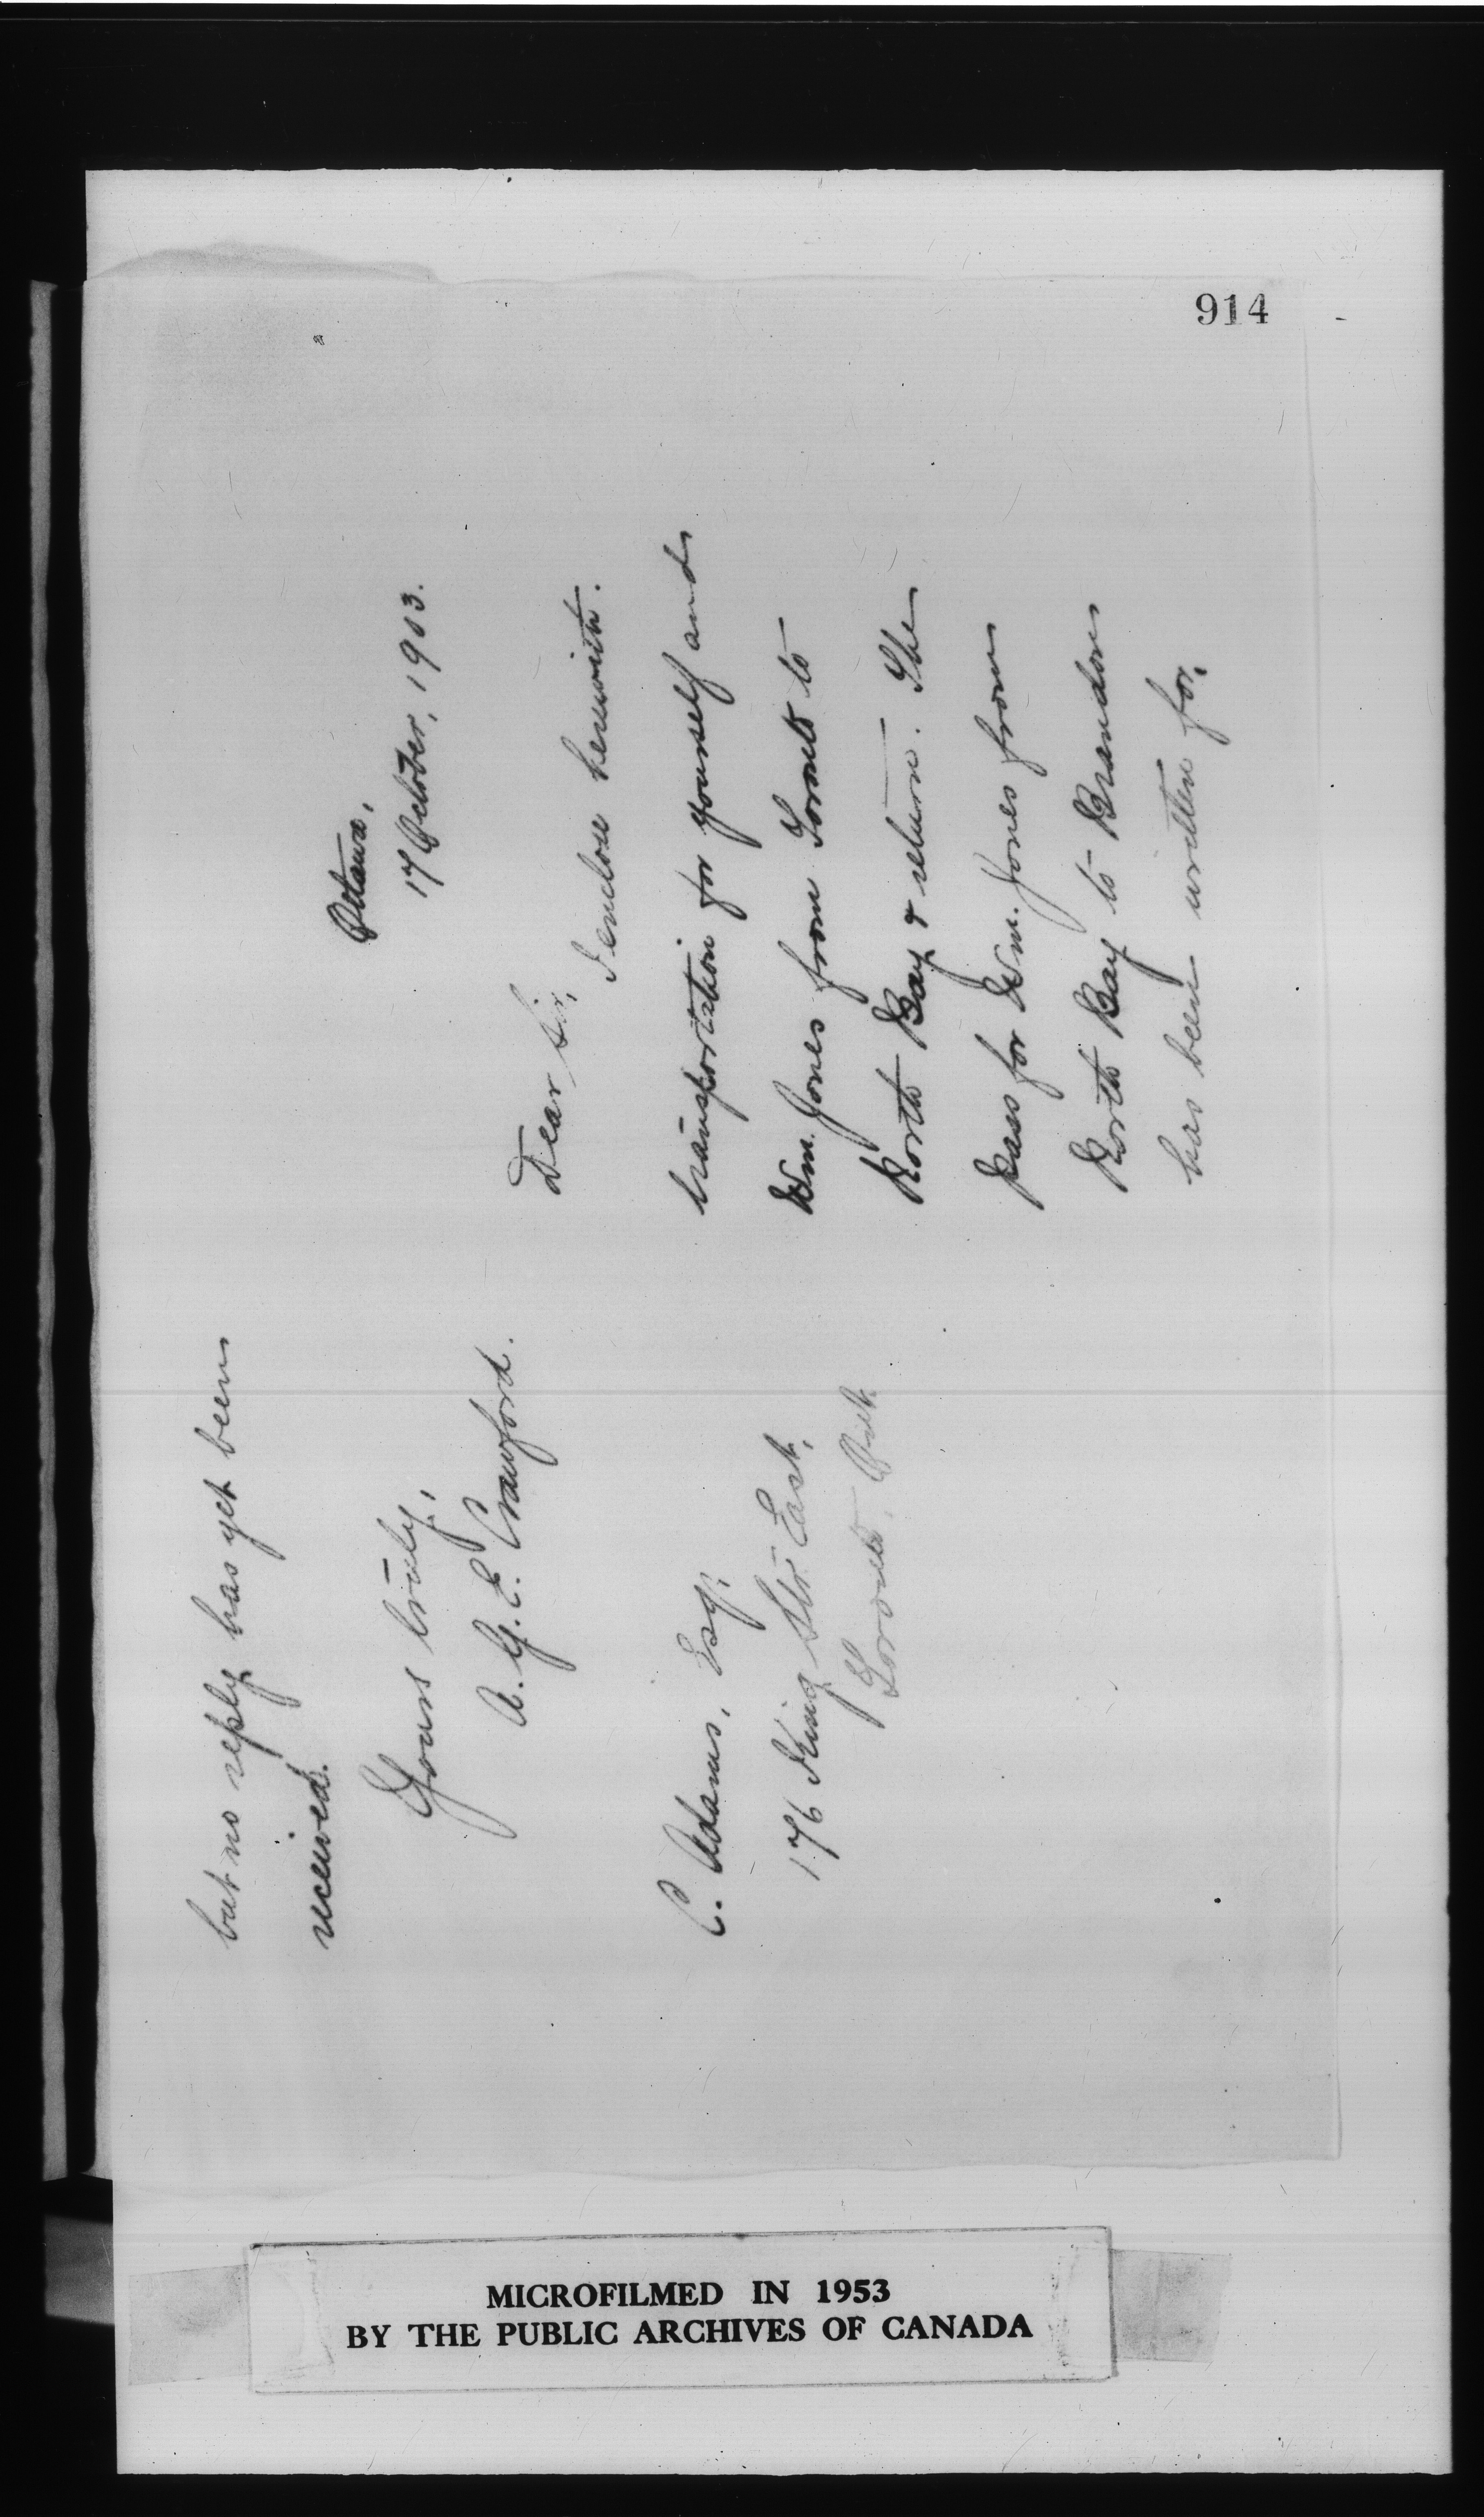 914
Ottawa,
17 October, 1903.
Dear Sir,
I enclose herewith
transportation for yourself and
Wm. Jones from Toronto to
North Bay & return. The
pass for Wm. Jones from
North Bay to Brandon
has been written for,
but no reply has yet been
received.
Yours truly,
A. G. E. Crawford.
C. Adams, Esq.
176 King Str East,
Toronto, Ont.
MICROFILMED IN 1953
BY THE PUBLIC ARCHIVES OF CANADA